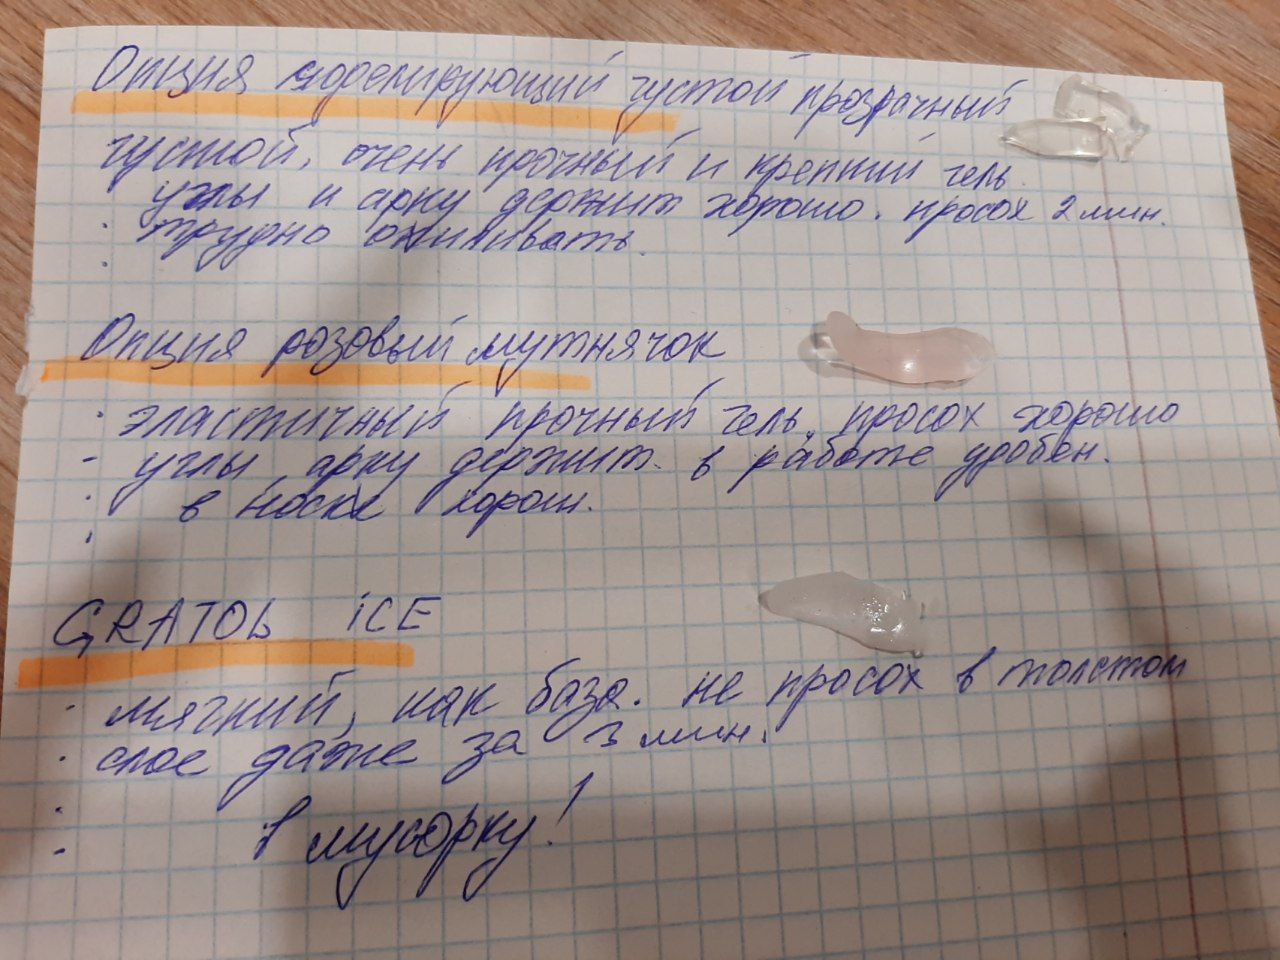 Опция моделирующий густой прозрачный
густой, очень прочный и крепкий гель.
углы и арку держит хорошо. просох 2 мин.
трудно опиливать.
Опция розовый мутнячок
эластичный прочный гель, просох хорошо
углы арку держит. в работе удобен.
в носке хорош.
GRATOL iCE
мягкий, как база. не просох в толстом
слое даже за 3 мин.
в мусорку!